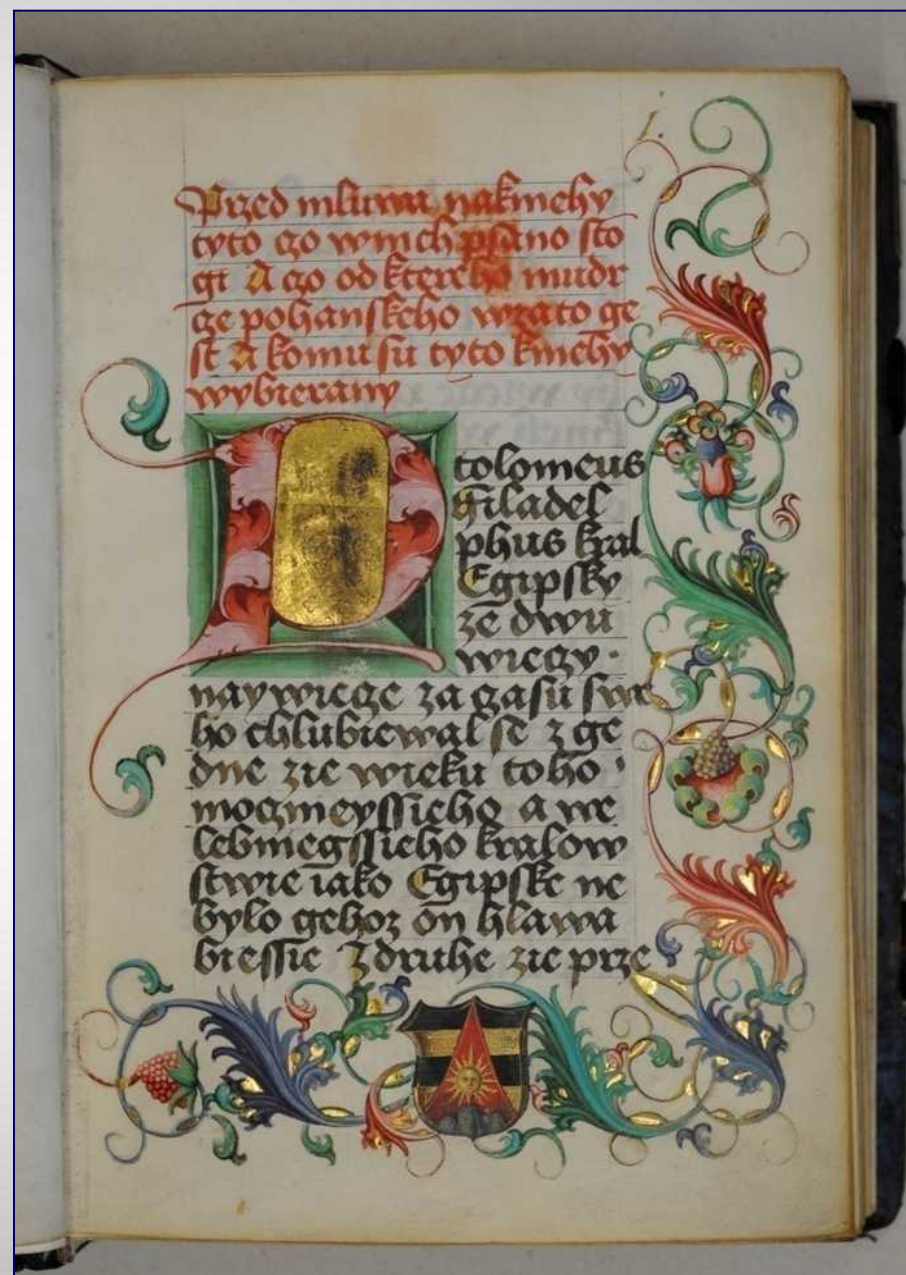 1.
Przed mluwa nakniehy
tyto czo wnich psano sto
gi A czo od ktereho mudr
cze pohanskeho wzato ge
st A komu su tyto kniehy
wybierany
Ptolomeus
Filadel
phus kral
Egipsky
ze dwu
wieczy ·
naywiecze za gasu swe
ho chlubiewal se z ge
dne zie wieku toho ·
mocznieyssieho a we
lebniegssieho kralow
stwie iako Egipske ne
bylo gehoz on hlawa
biessie Zdruhe zie prze